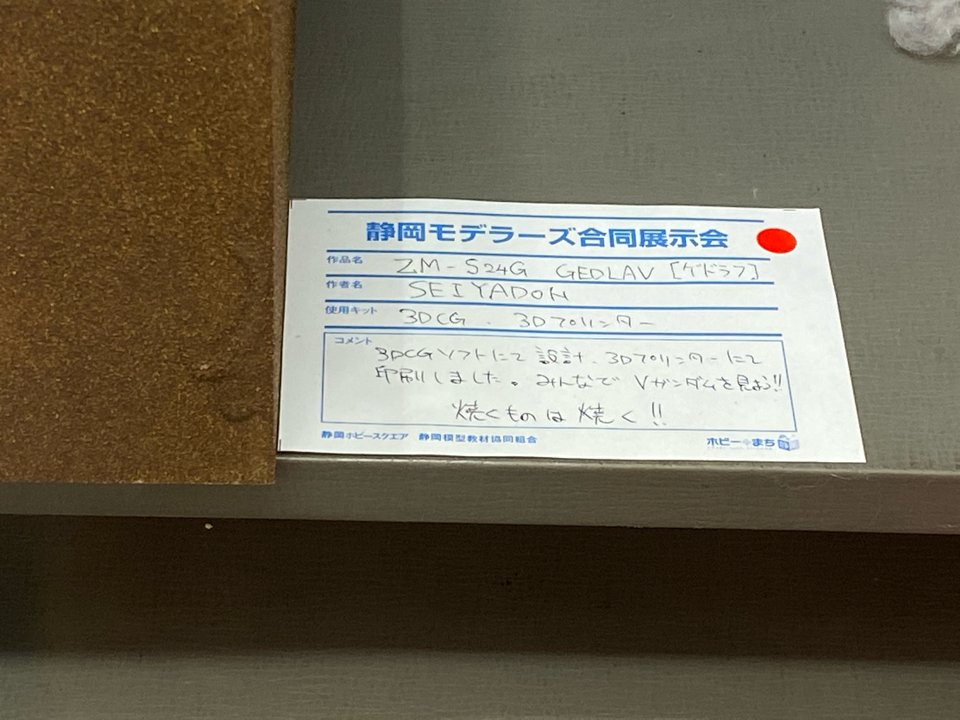 静岡モデラーズ合同展示会
作品名 ZM-S24G GEDLAV [ゲドラフ]
作者名 SEIYADON
使用キット 3DCG. 3Dプリンター
コメント
3DCGソフトにて設計、3Dプリンターにて
印刷しました。みんなでVガンダムを見よう!!
焼くものは焼く!!
静岡ホビースクエア 静岡模型教材協同組合
ホビーのまち